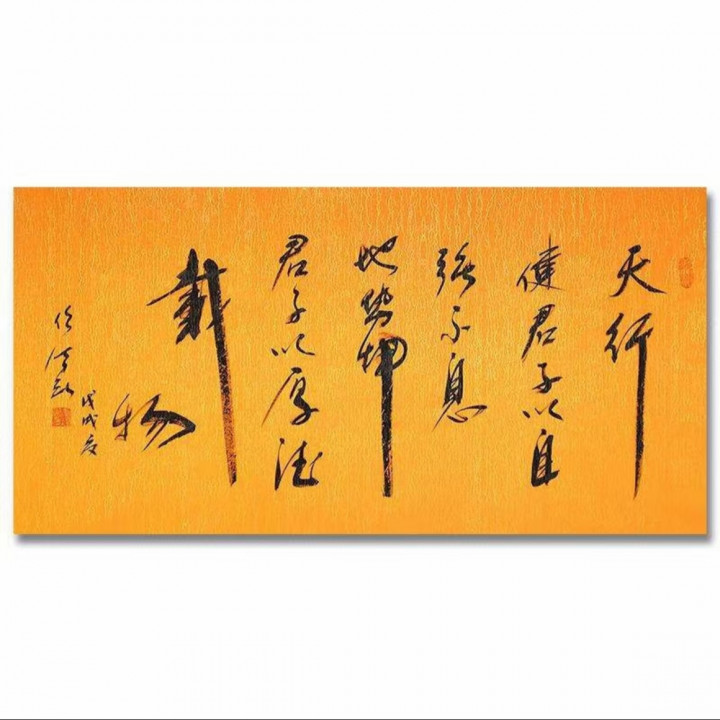 天行
健君子以自
强不息
地势坤
君子以厚德
载物
戊戌夏